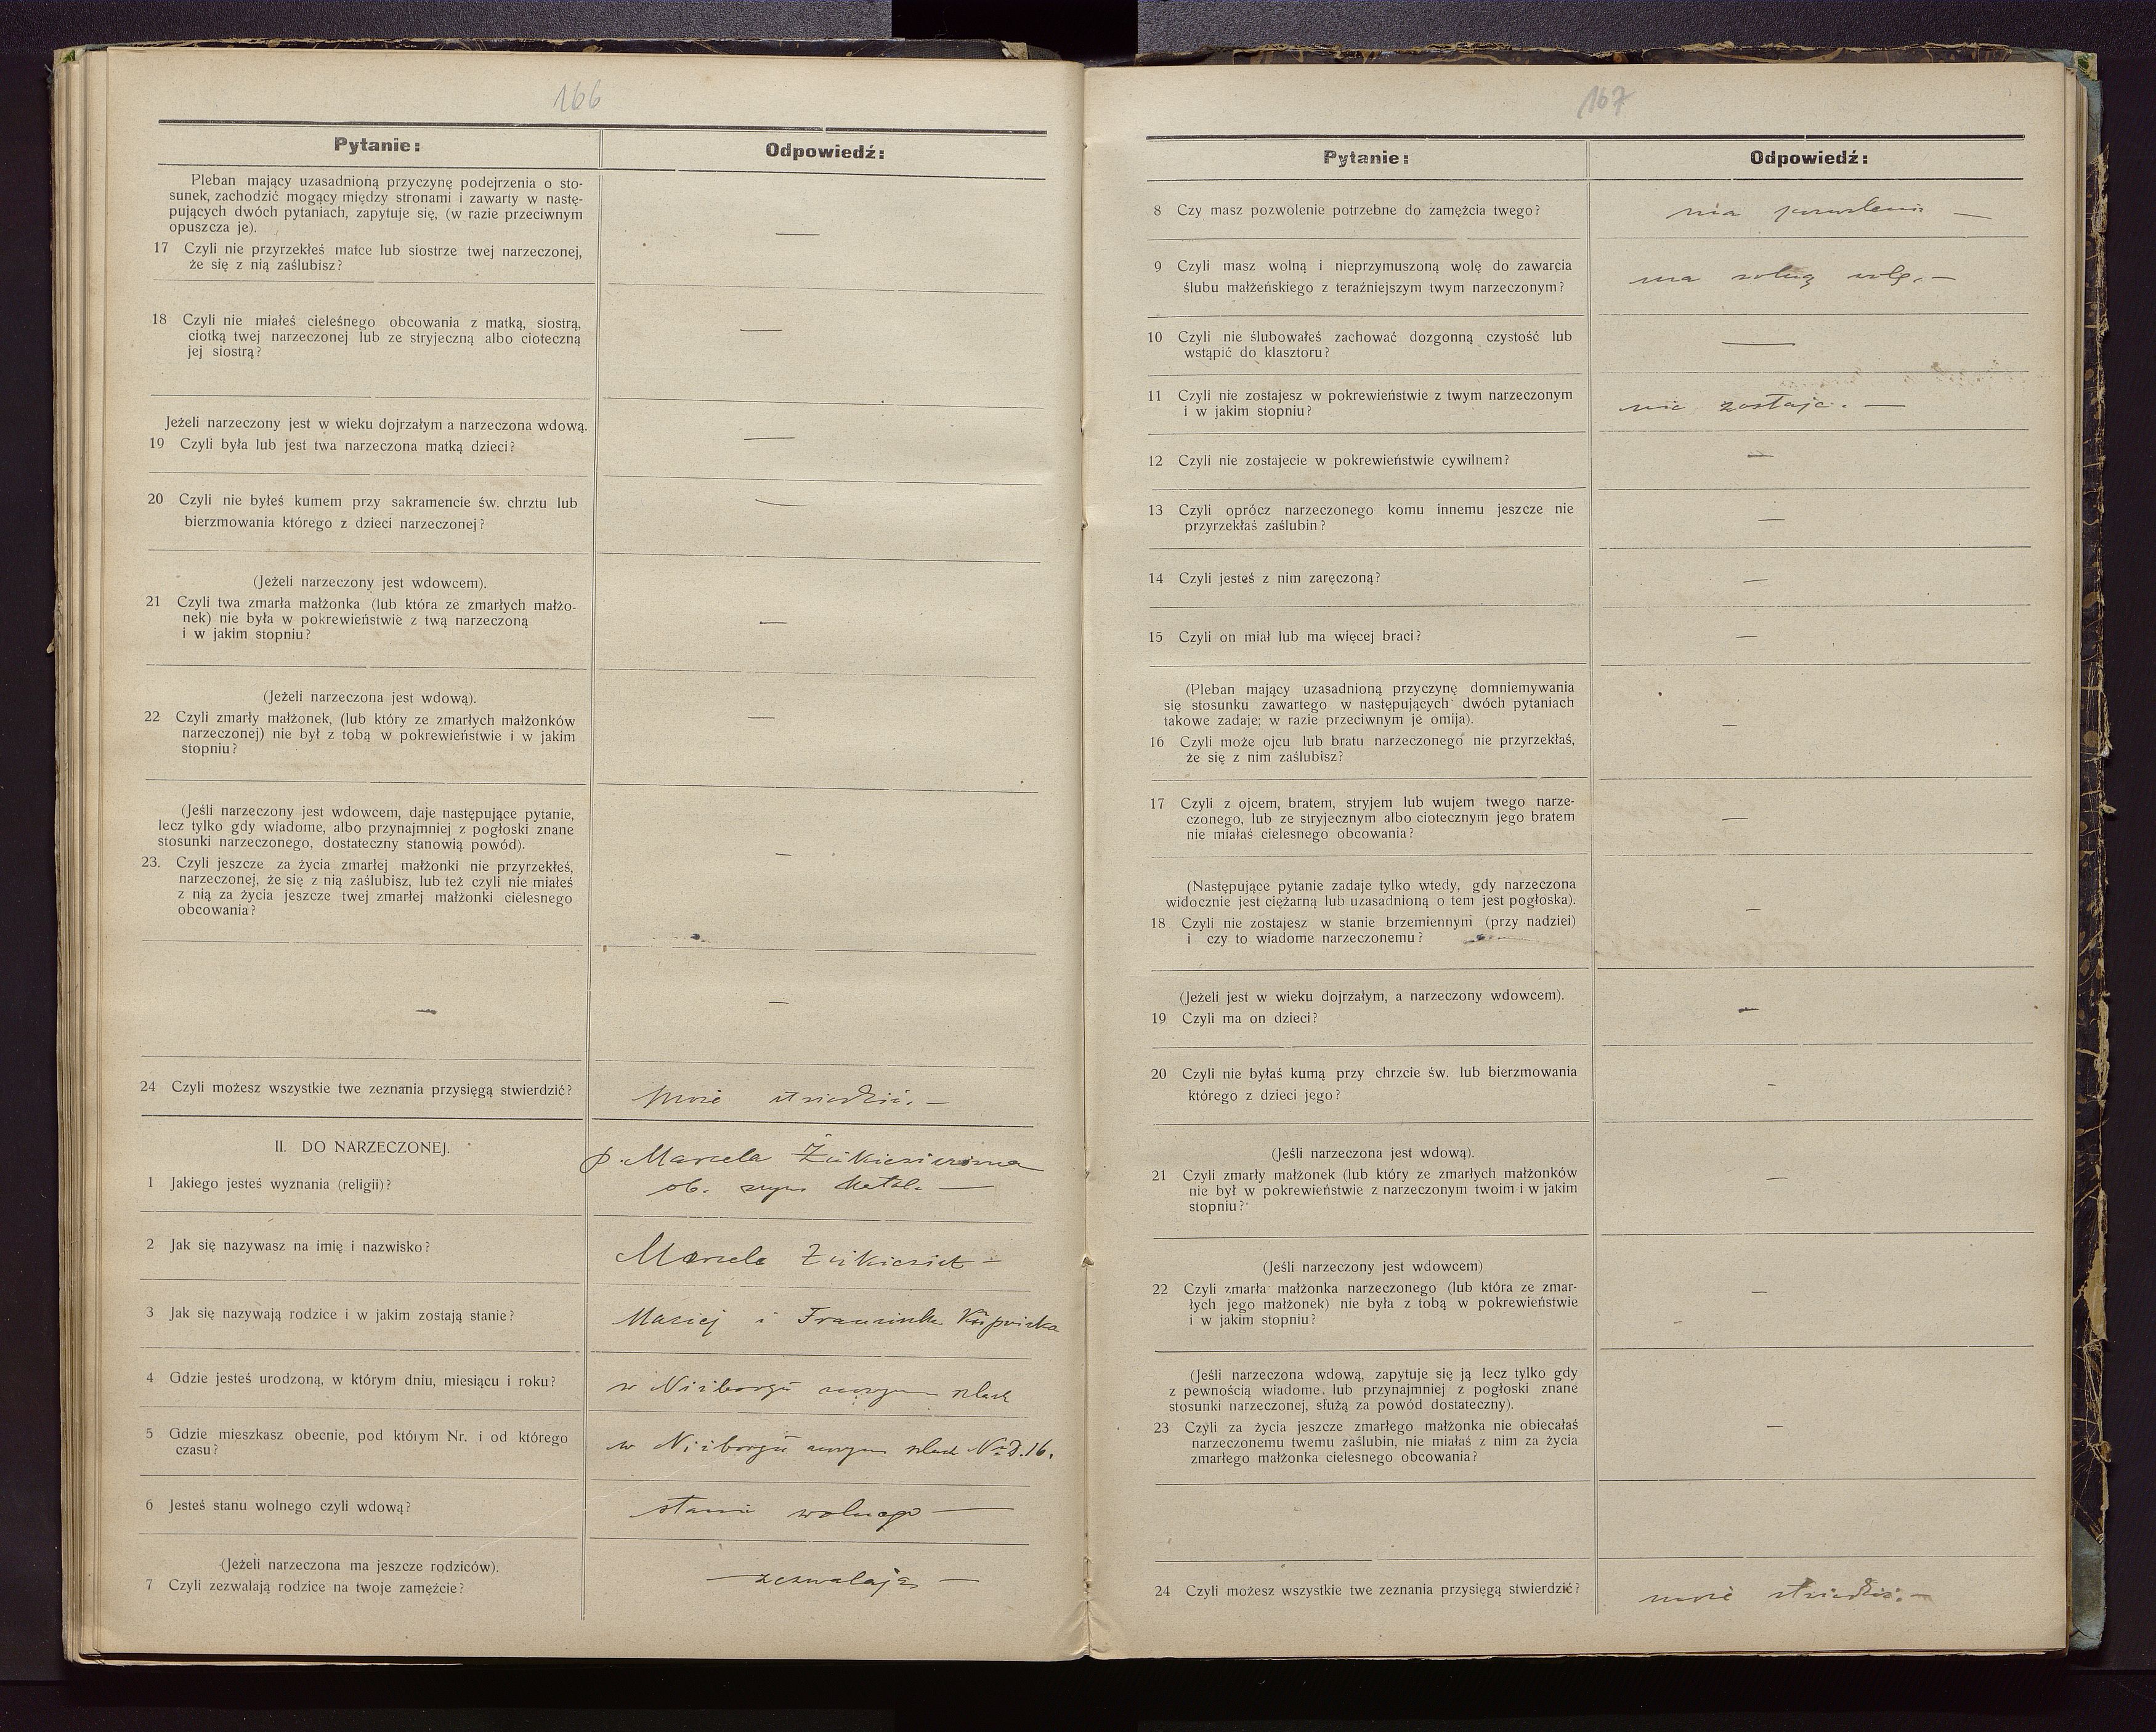 166
Pytanie:
Odpowiedź:
Pleban mający uzasadnioną przyczynę podejrzenia o sto-
sunek, zachodzić mogący między stronami i zawarty w nastę-
pujących dwóch pytaniach, zapytuje się, (w razie przeciwnym
opuszcza je).
17 Czyli nie przyrzekłeś matce lub siostrze twej narzeczonej,
że się z nią zaślubisz?
—
18 Czyli nie miałeś cieleśnego obcowania z matką, siostrą,
ciotką twej narzeczonej lub ze stryjeczną albo cioteczną
jej siostrą?
—
Jeżeli narzeczony jest w wieku dojrzałym a narzeczona wdową.
19 Czyli była lub jest twa narzeczona matką dzieci?
—
20 Czyli nie byłeś kumem przy sakramencie św. chrztu lub
bierzmowania którego z dzieci narzeczonej?
—
(Jeżeli narzeczony jest wdowcem).
21 Czyli twa zmarła małżonka (lub która ze zmarłych małżo-
nek) nie była w pokrewieństwie z twą narzeczoną
i w jakim stopniu?
—
(Jeżeli narzeczona jest wdową).
22 Czyli zmarły małżonek, (lub który ze zmarłych małżonków
narzeczonej) nie był z tobą w pokrewieństwie i w jakim
stopniu?
—
(Jeśli narzeczony jest wdowcem, daje następujące pytanie,
lecz tylko gdy wiadome, albo przynajmniej z pogłoski znane
stosunki narzeczonego, dostateczny stanowią powód).
23. Czyli jeszcze za życia zmarłej małżonki nie przyrzekłeś,
narzeczonej, że się z nią zaślubisz, lub też czyli nie miałeś
z nią za życia jeszcze twej zmarłej małżonki cielesnego
obcowania?
—
— —
24 Czyli możesz wszystkie twe zeznania przysięgą stwierdzić?
może stwierdzić. —
II. DO NARZECZONEJ.
1 Jakiego jesteś wyznania (religii)?
p. Marcela
ob. —
2 Jak się nazywasz na imię i nazwisko?
Marcela
3 Jak się nazywają rodzice i w jakim zostają stanie?
Maciej i Franciszka
4 Gdzie jesteś urodzoną, w którym dniu, miesiącu i roku?
w Niżborgu nowym szlach
5 Gdzie mieszkasz obecnie, pod którym Nr. i od którego
czasu?
w Niżborgu nowym szlach Nr D. 16.
6 Jesteś stanu wolnego czyli wdową?
stanu wolnego —
(Jeżeli narzeczona ma jeszcze rodziców).
7 Czyli zezwalają rodzice na twoje zamężcie?
— zezwalają —
167
Pytanie:
Odpowiedź:
8 Czy masz pozwolenie potrzebne do zamężcia twego?
ma pozwolenie —
9 Czyli masz wolną i nieprzymuszoną wolę do zawarcia
ślubu małżeńskiego z teraźniejszym twym narzeczonym?
ma wolną wolę. —
10 Czyli nie ślubowałeś zachować dozgonną czystość lub
wstąpić do klasztoru?
—
11 Czyli nie zostajesz w pokrewieństwie z twym narzeczonym
i w jakim stopniu?
nie zostaje. —
12 Czyli nie zostajecie w pokrewieństwie cywilnem?
—
13 Czyli oprócz narzeczonego komu innemu jeszcze nie
przyrzekłaś zaślubin?
—
14 Czyli jesteś z nim zaręczoną?
—
15 Czyli on miał lub ma więcej braci?
—
(Pleban mający uzasadnioną przyczynę domniemywania
się stosunku zawartego w następujących dwóch pytaniach
takowe zadaje; w razie przeciwnym je omija).
16 Czyli może ojcu lub bratu narzeczonego nie przyrzekłaś,
że się z nim zaślubisz?
—
17 Czyli z ojcem, bratem, stryjem lub wujem twego narze-
czonego, lub ze stryjecznym albo ciotecznym jego bratem
nie miałaś cielesnego obcowania?
—
(Następujące pytanie zadaje tylko wtedy, gdy narzeczona
widocznie jest ciężarną lub uzasadnioną o tem jest pogłoska).
18 Czyli nie zostajesz w stanie brzemiennym (przy nadziei)
i czy to wiadome narzeczonemu?
—
(Jeżeli jest w wieku dojrzałym, a narzeczony wdowcem).
19 Czyli ma on dzieci?
—
20 Czyli nie byłaś kumą przy chrzcie św. lub bierzmowania
którego z dzieci jego?
—
(Jeśli narzeczona jest wdową).
21 Czyli zmarły małżonek (lub który ze zmarłych małżonków
nie był w pokrewieństwie z narzeczonym twoim i w jakim
stopniu?
—
(Jeśli narzeczony jest wdowcem)
22 Czyli zmarła małżonka narzeczonego (lub która ze zmar-
łych jego małżonek) nie była z tobą w pokrewieństwie
i w jakim stopniu?
—
(Jeśli narzeczona wdową, zapytuje się ją lecz tylko gdy
z pewnością wiadome, lub przynajmniej z pogłoski znane
stosunki narzeczonej, służą za powód dostateczny).
23 Czyli za życia jeszcze zmarłego małżonka nie obiecałaś
narzeczonemu twemu zaślubin, nie miałaś z nim za życia
zmarłego małżonka cielesnego obcowania?
—
24 Czyli możesz wszystkie twe zeznania przysięgą stwierdzić?
może stwierdzić. —